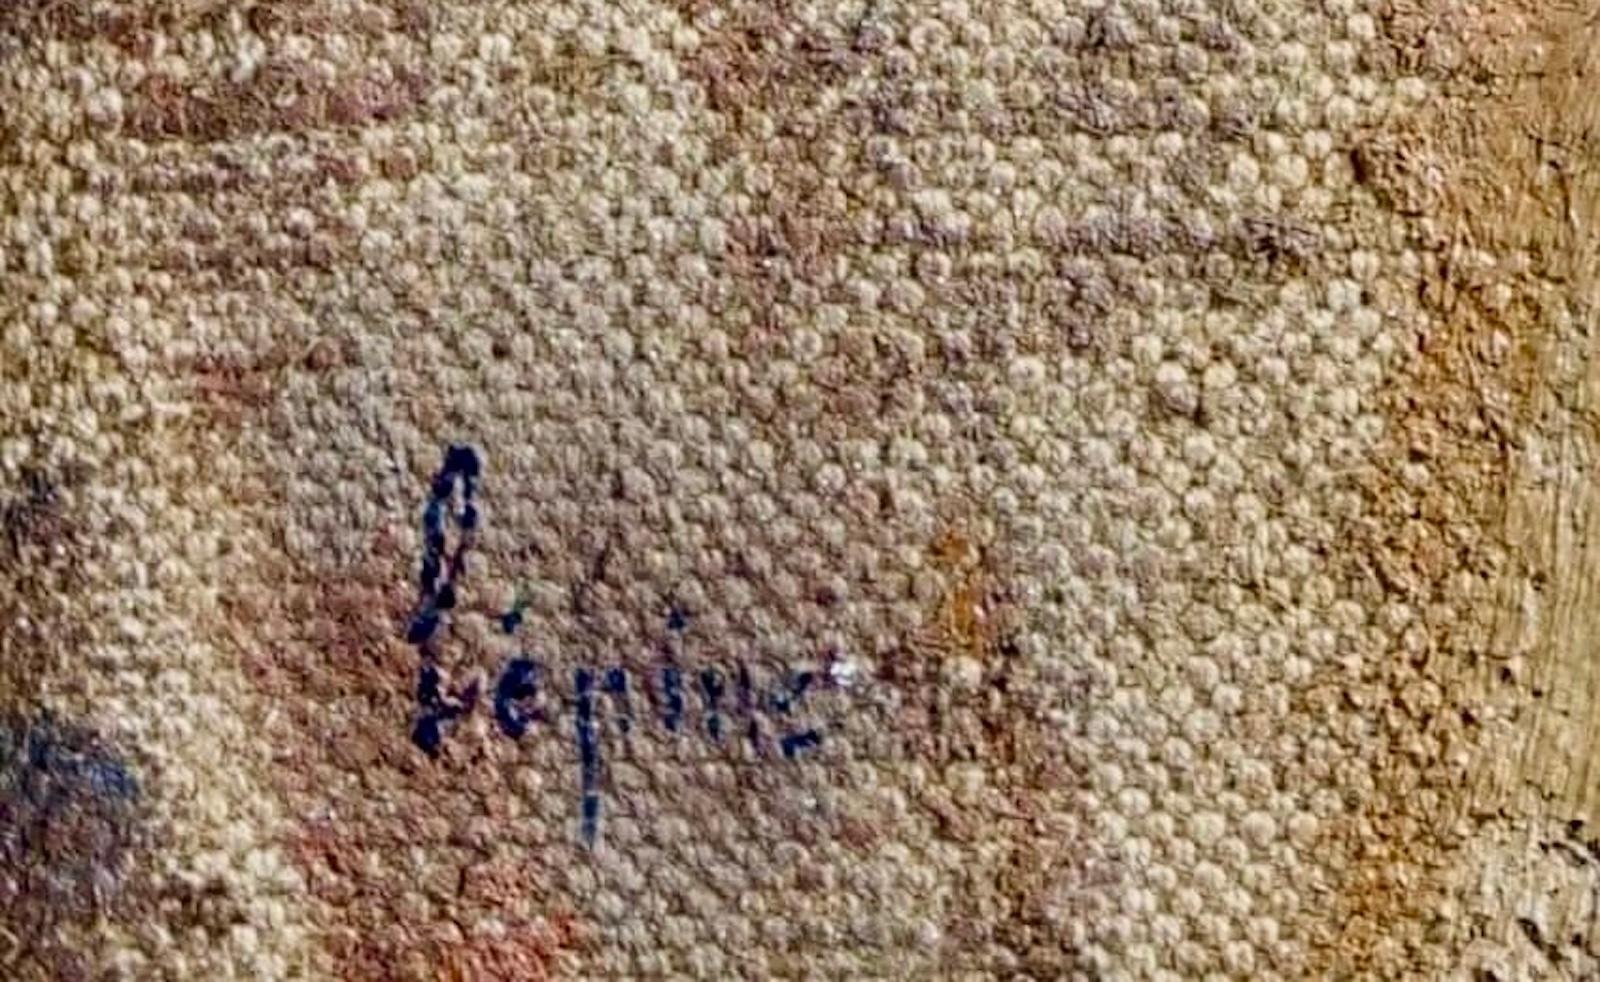 Lépine